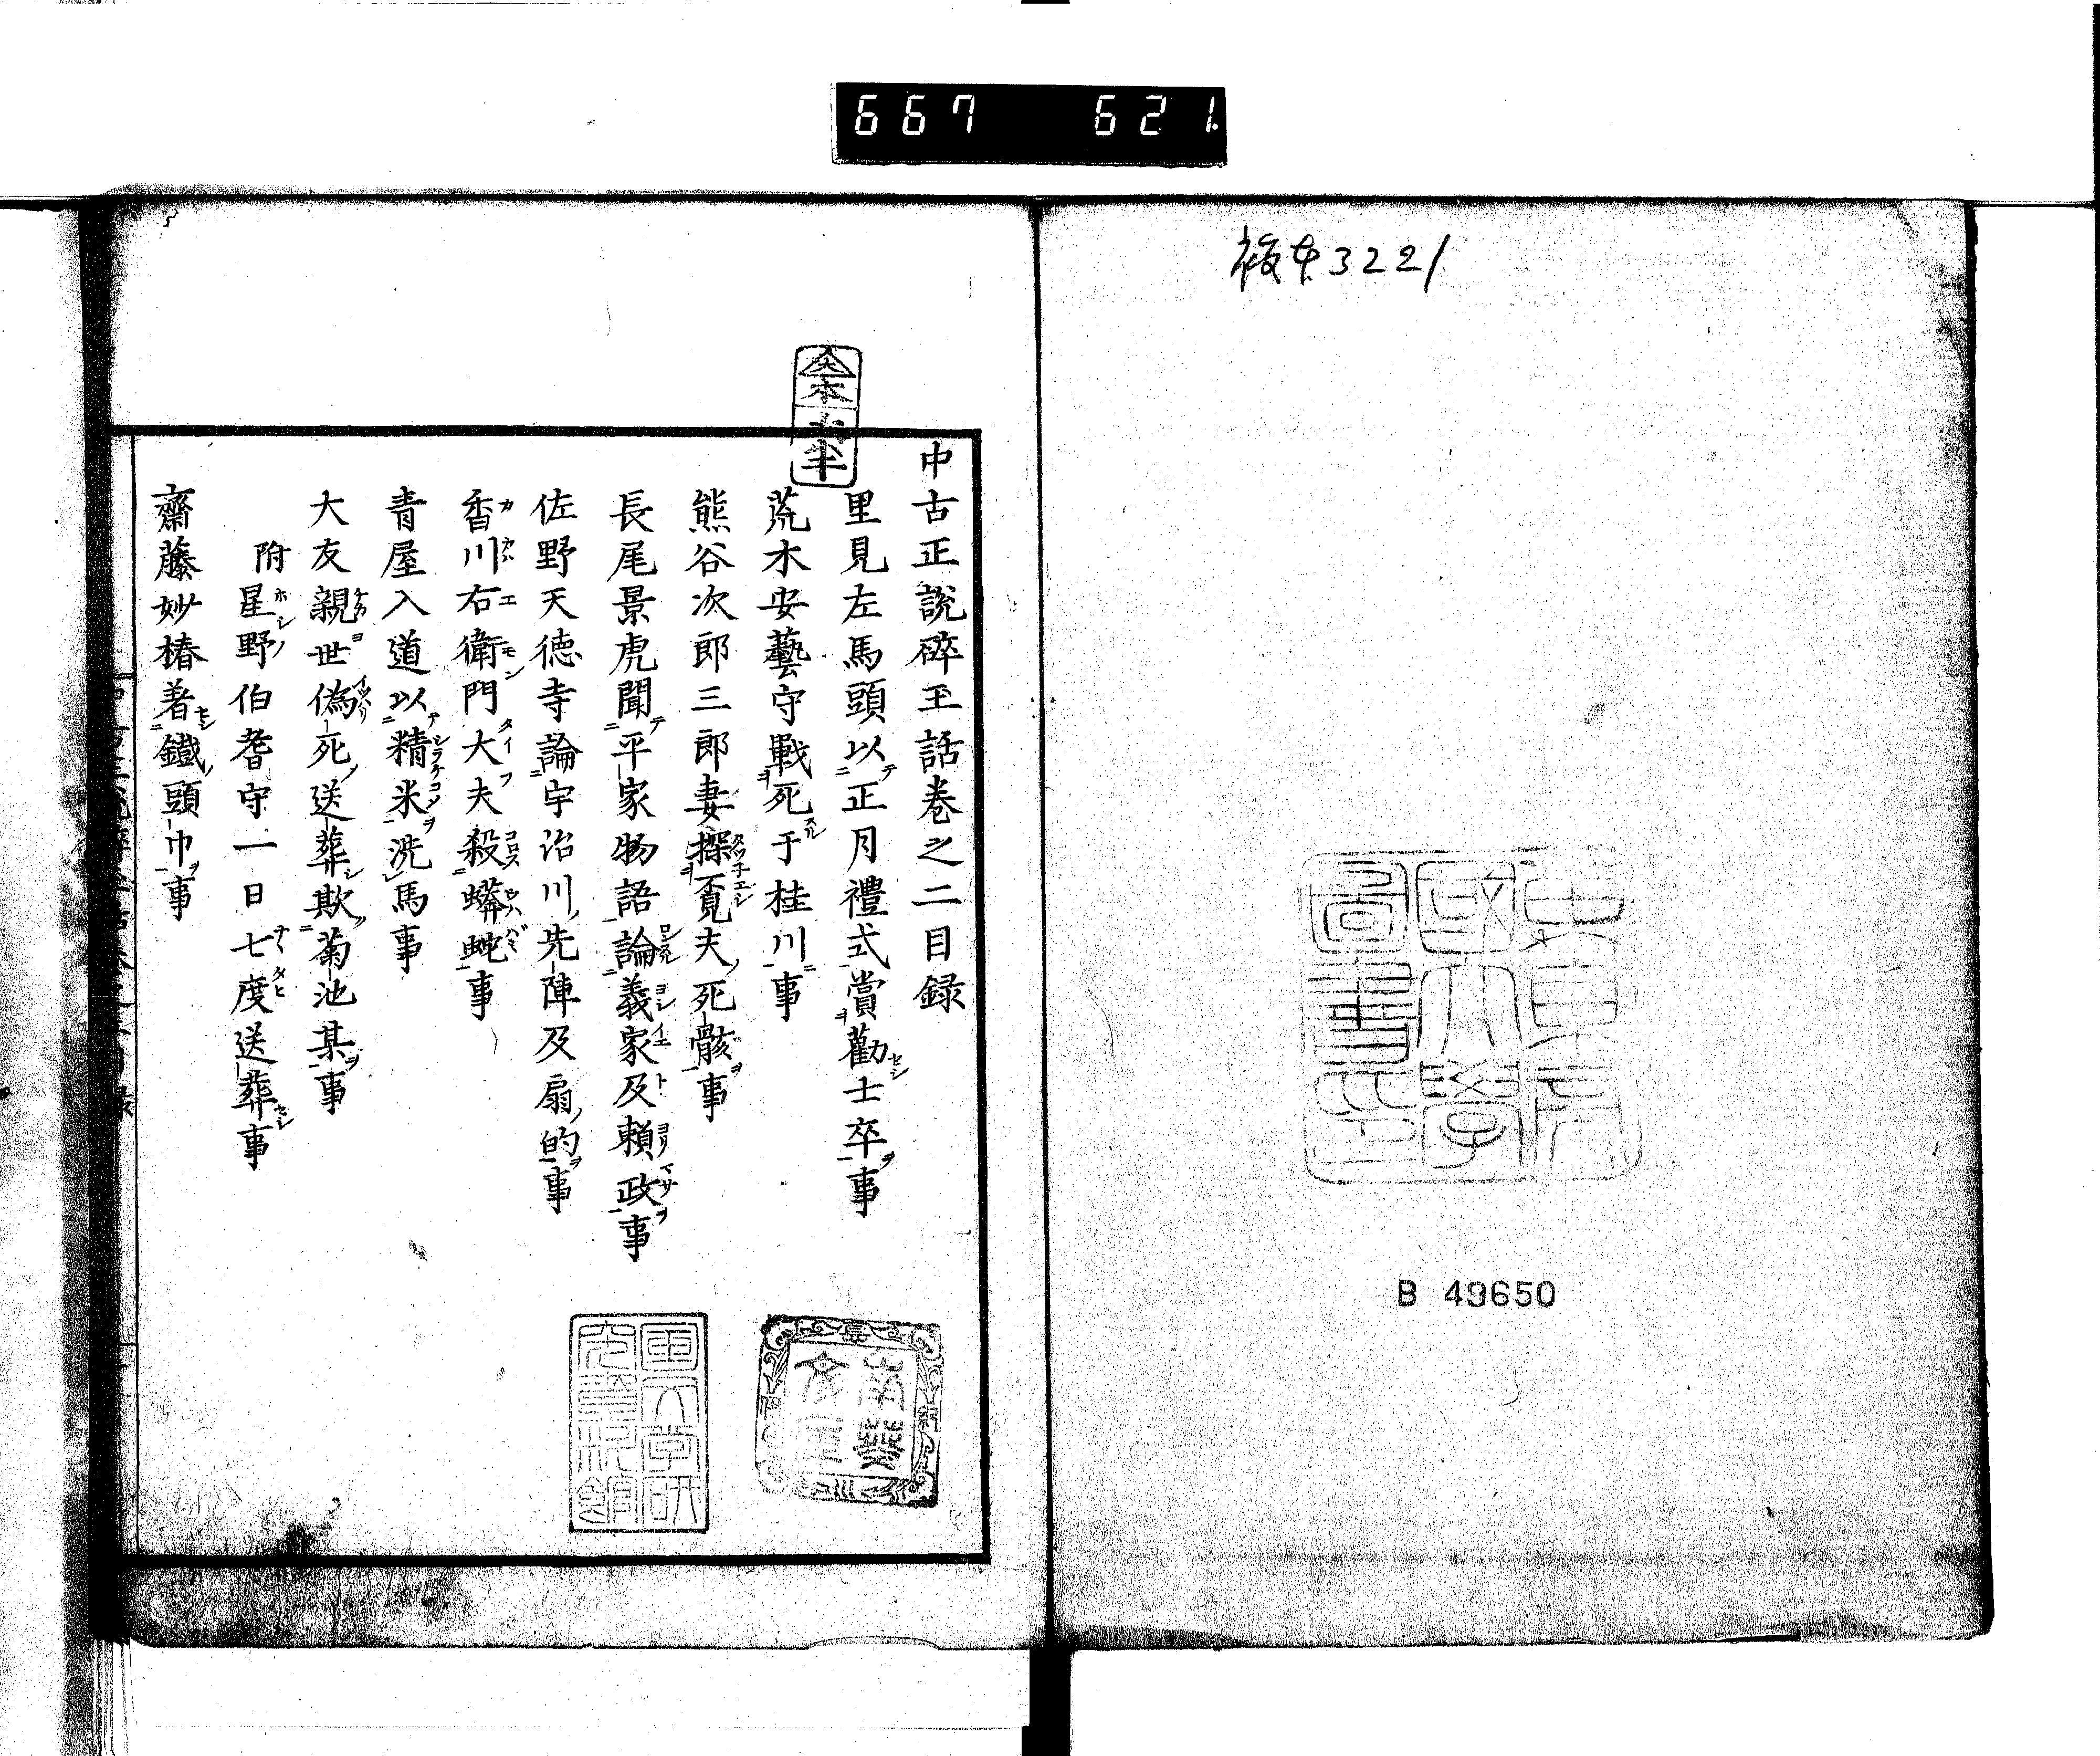 667 621
複本3221
東京帝國大學圖書印
B 49650
中古正說碎玉話卷之二目録
里見左馬頭以正月禮式賞勸士卒事
荒木安藝守戰死于桂川事
熊谷次郎三郎妻探覓夫死骸事
長尾景虎聞平家物語論義家及頼政事
佐野天徳寺論宇治川先陣及扇的事
香川右衛門大夫殺蟒蛇事
青屋入道以精米洗馬事
大友親世偽死送葬欺菊池某事
附星野伯耆守一日七度送葬事
齋藤妙椿著鐵頭巾事